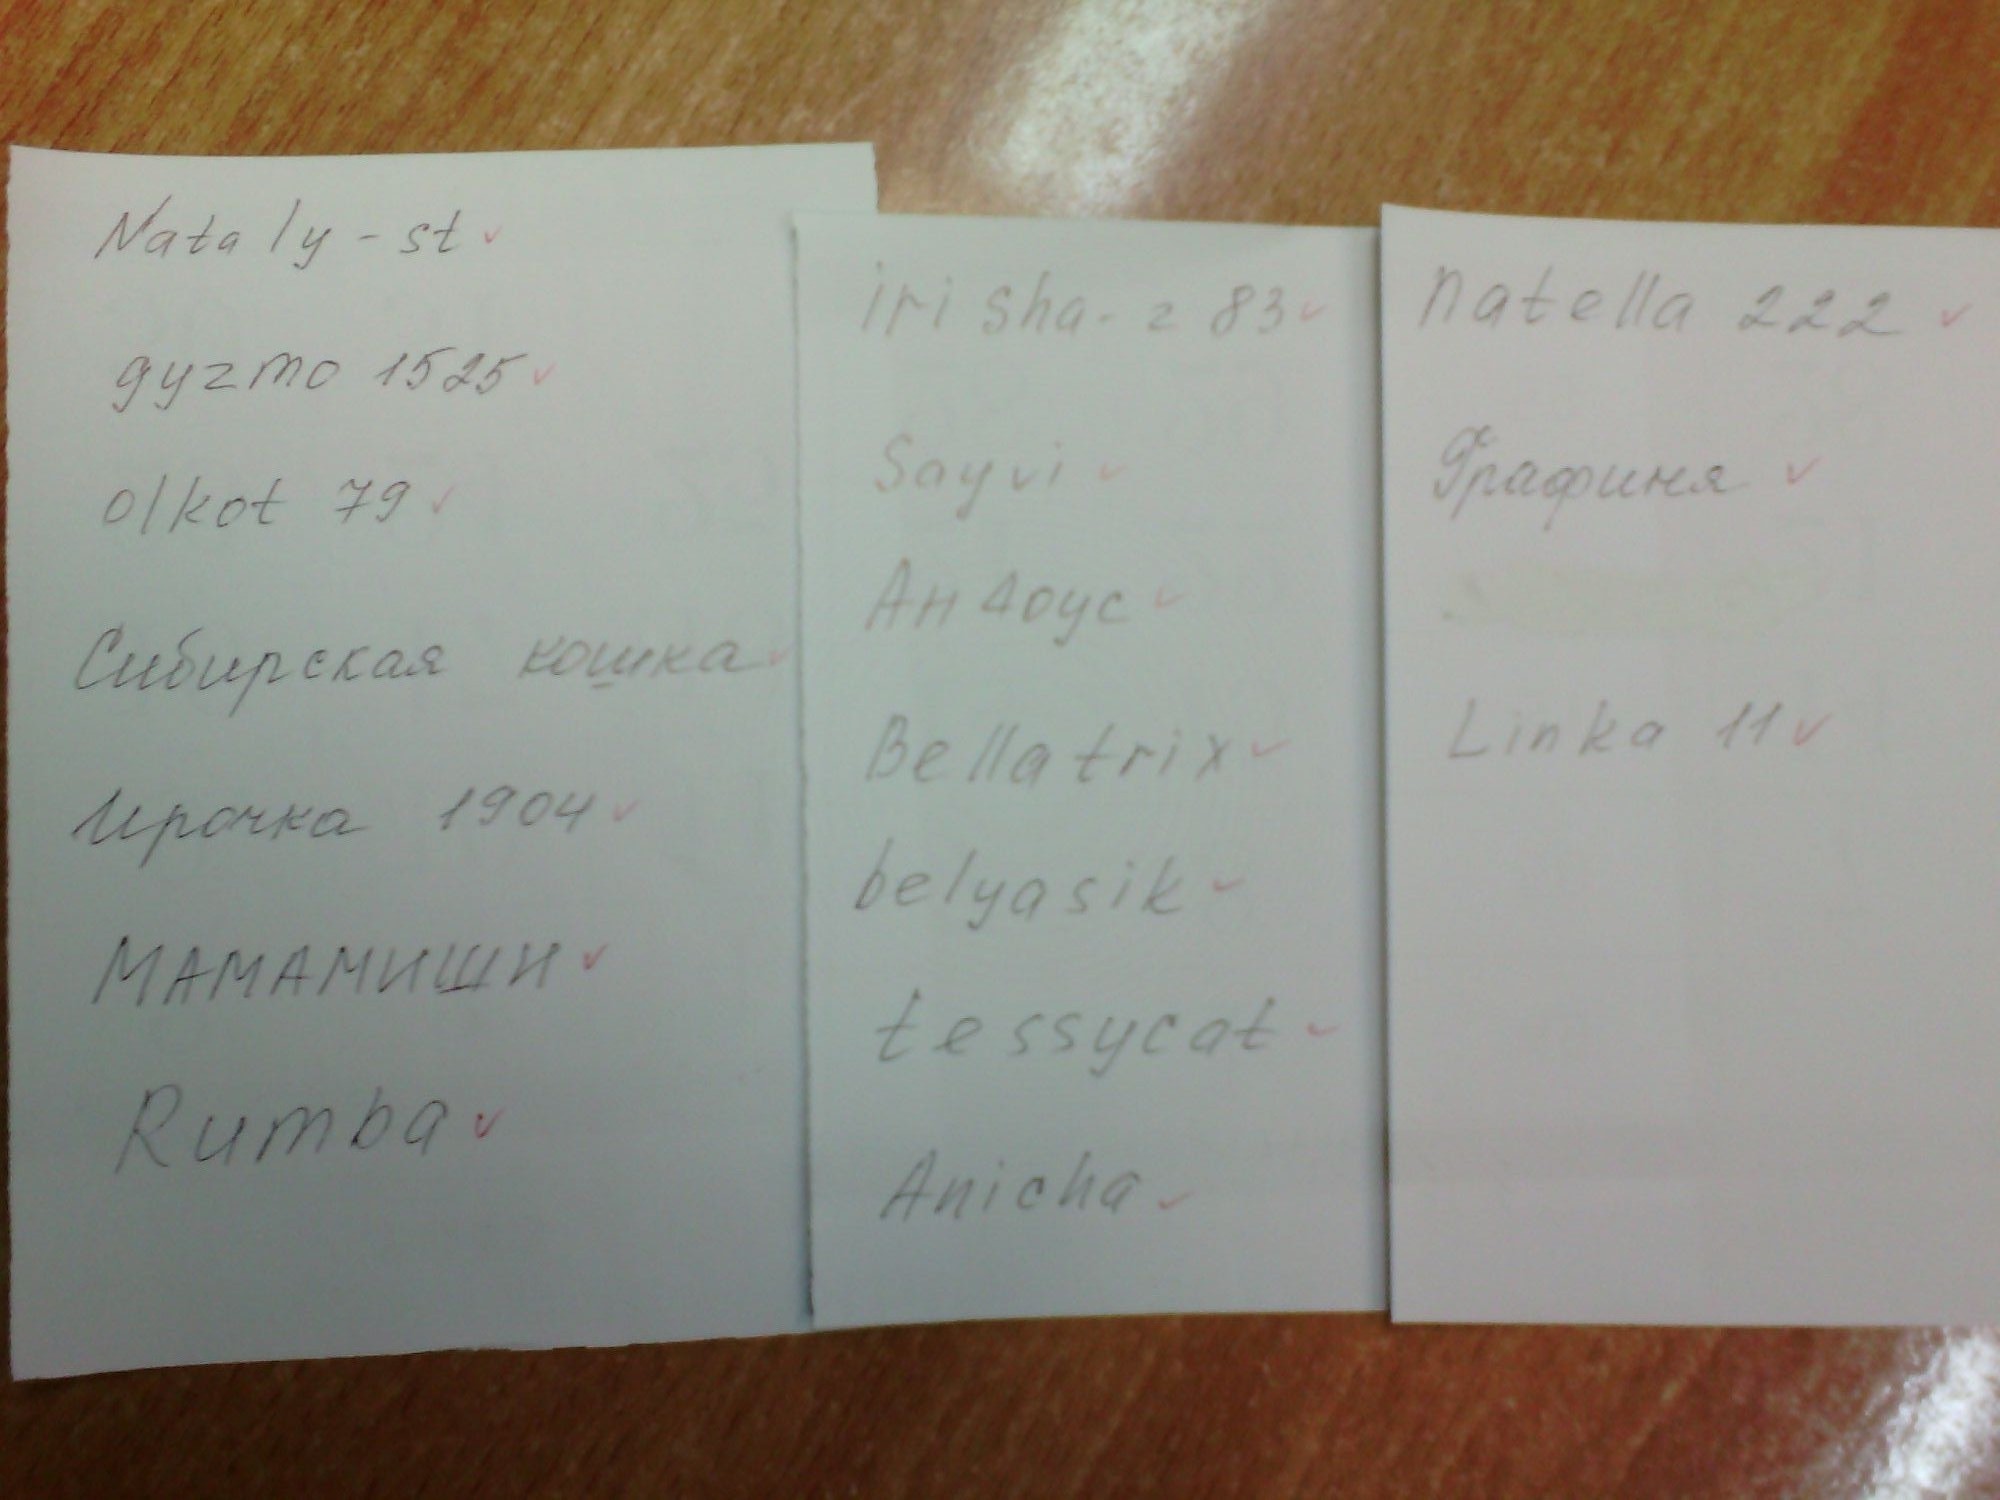 Nataly-st
gyzmo 1525
olkot 79
Сибирская кошка
Ирочка 1904
МАМАМИШИ
Rumba
irisha-z 83
Sayvi
Андоус
Bellatrix
belyasik
tessycat
Anicha
natella 222
Графиня
Linka 11